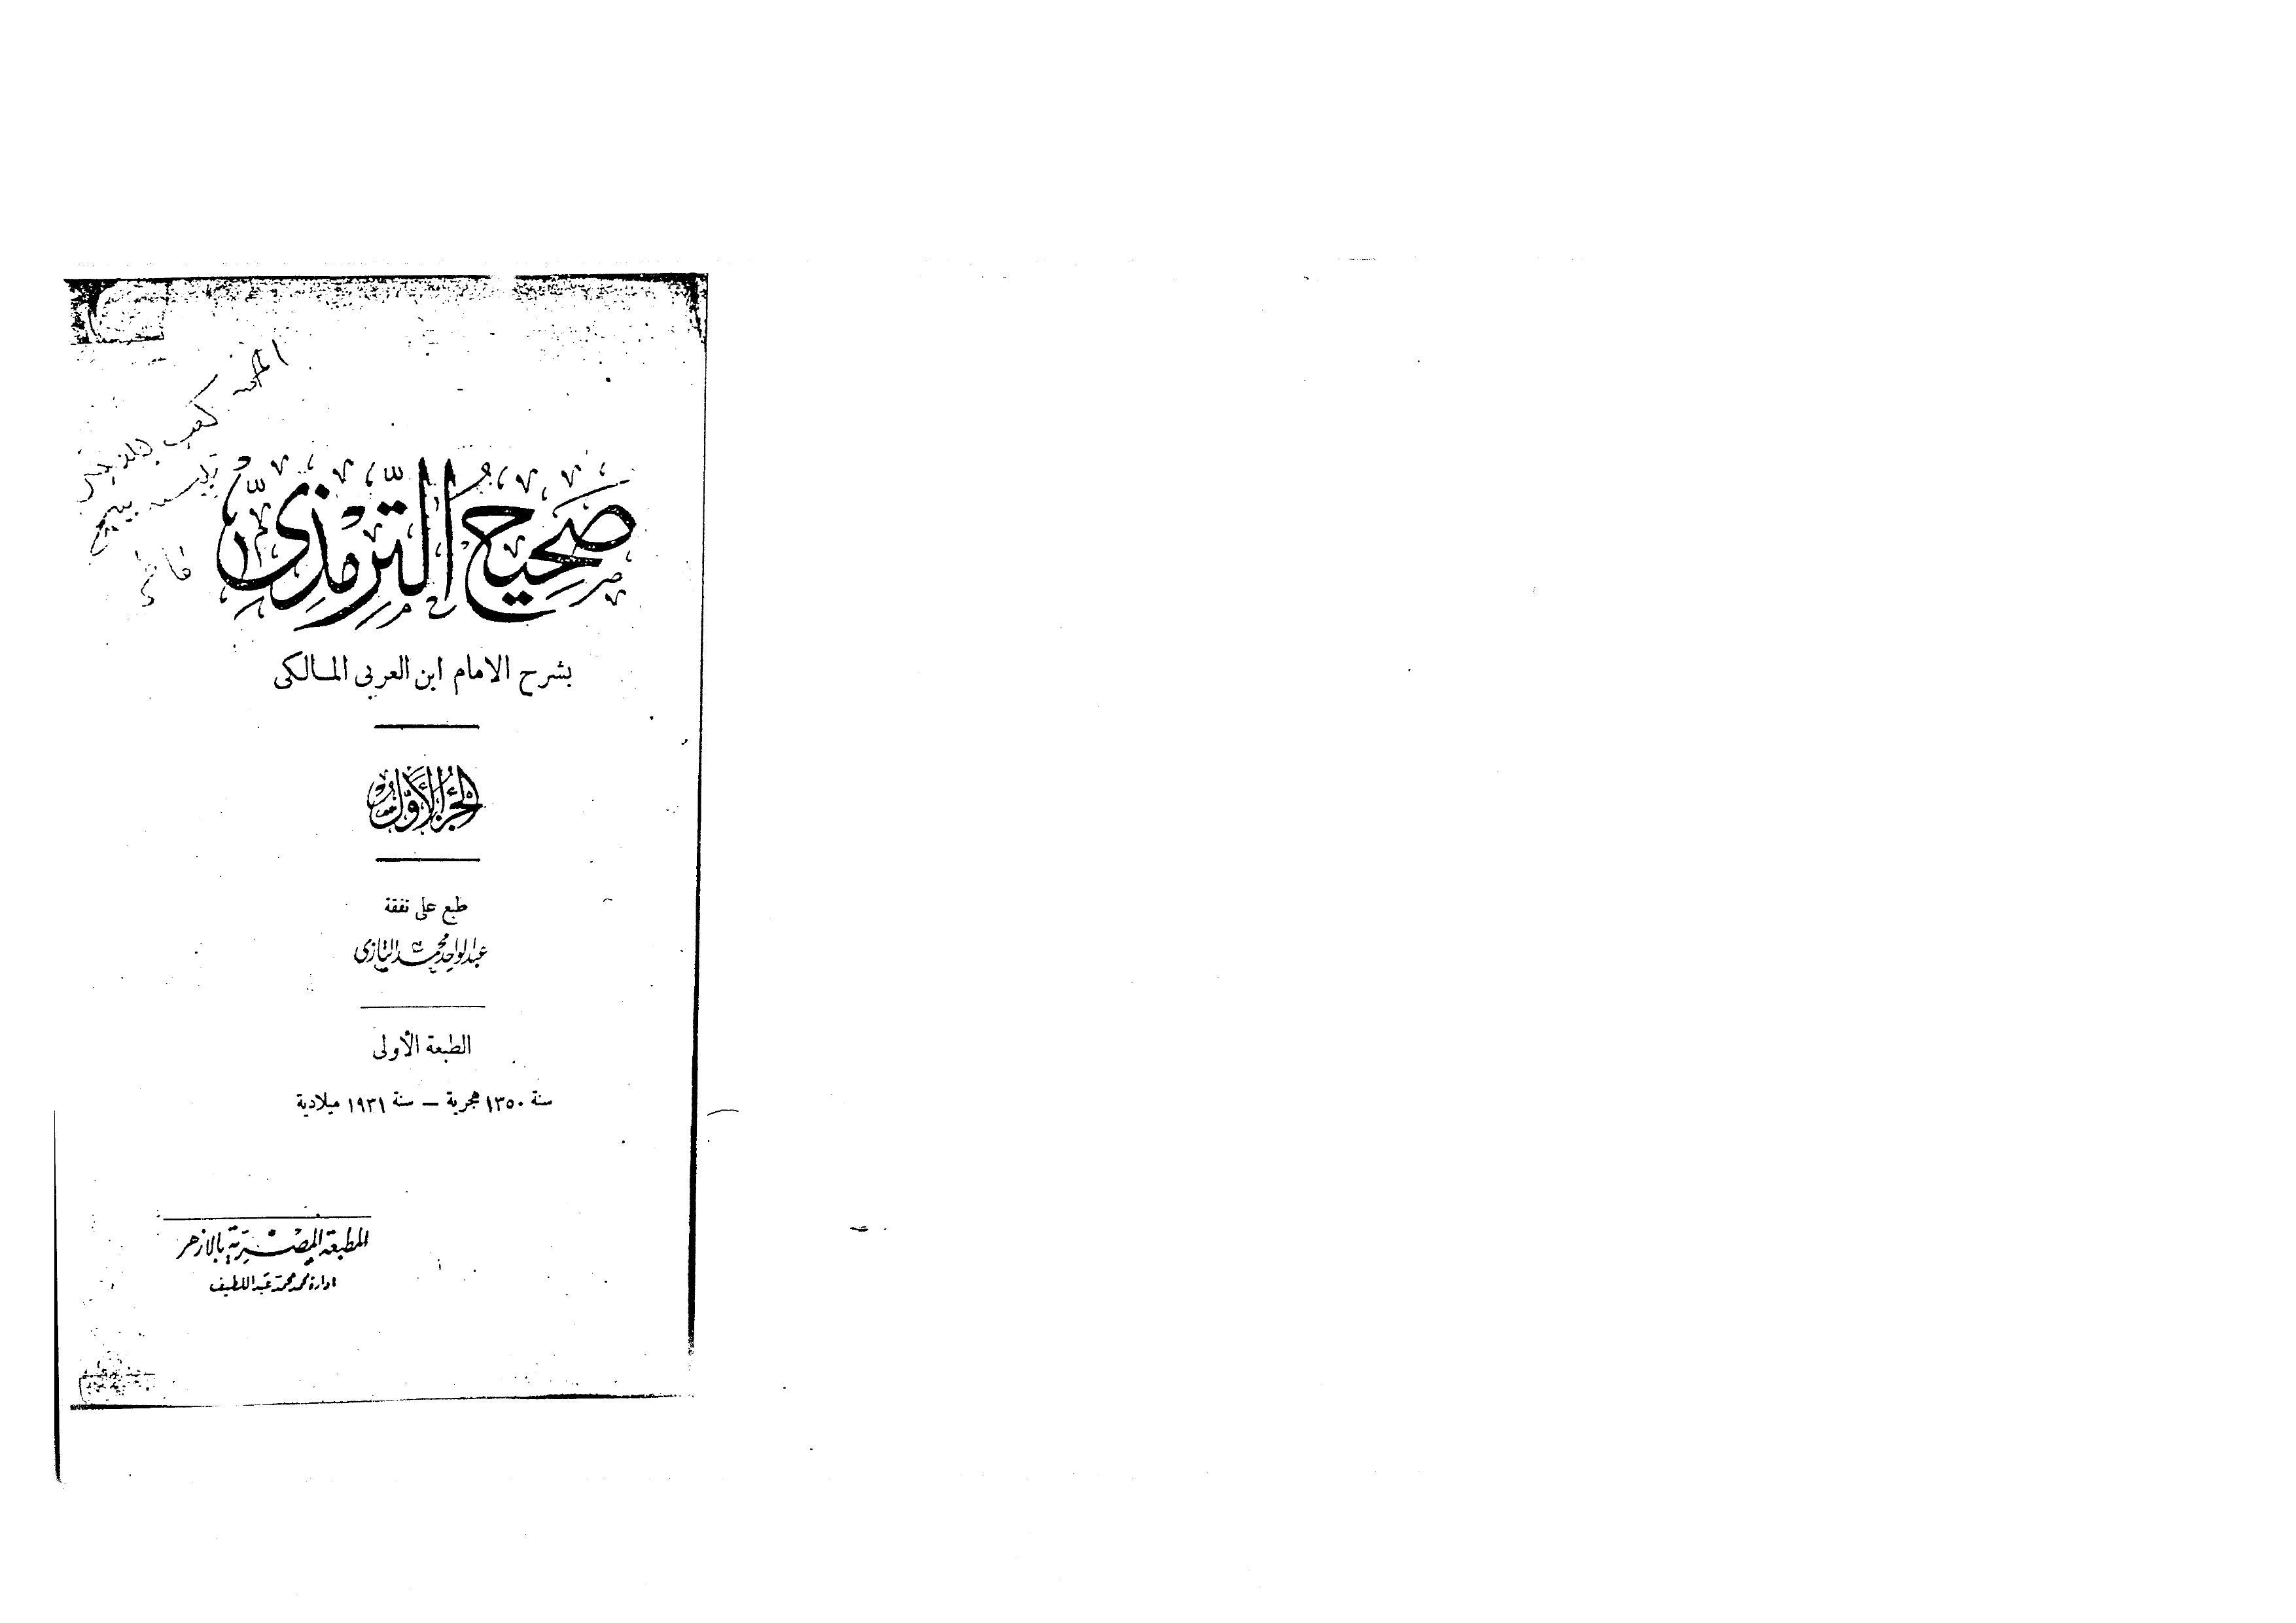 صَحِيحُ التِّرْمِذِيِّ
بشرح الامام ابن العربى المالكى
الجزء الأول
طبع على نفقة
عبد الواحد محمد التازى
الطبعة الأولى
سنة ١٣٥٠ هجرية — سنة ١٩٣١ ميلادية
المطبعة المصرية بالازهر
ادارة محمد محمد عبد اللطيف